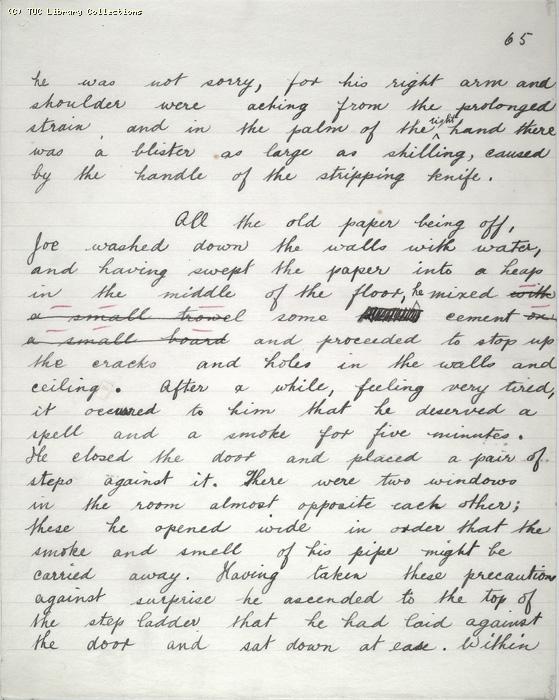 (c) TUC Library Collections
65
he was not sorry, for his right arm and
shoulder were aching from the prolonged
strain, and in the palm of the right hand there
was a blister as large as shilling, caused
by the handle of the stripping knife.
All the old paper being off,
Joe washed down the walls with water,
and having swept the paper into a heap
in the middle of the floor, he mixed with
a small trowel some cement on
a small board and proceeded to stop up
the cracks and holes in the walls and
ceiling. After a while, feeling very tired,
it occurred to him that he deserved a
spell and a smoke for five minutes.
He closed the door and placed a pair of
steps against it. There were two windows
in the room almost opposite each other;
these he opened wide in order that the
smoke and smell of his pipe might be
carried away. Having taken these precautions
against surprise he ascended to the top of
the step ladder that he had laid against
the door and sat down at ease. Within